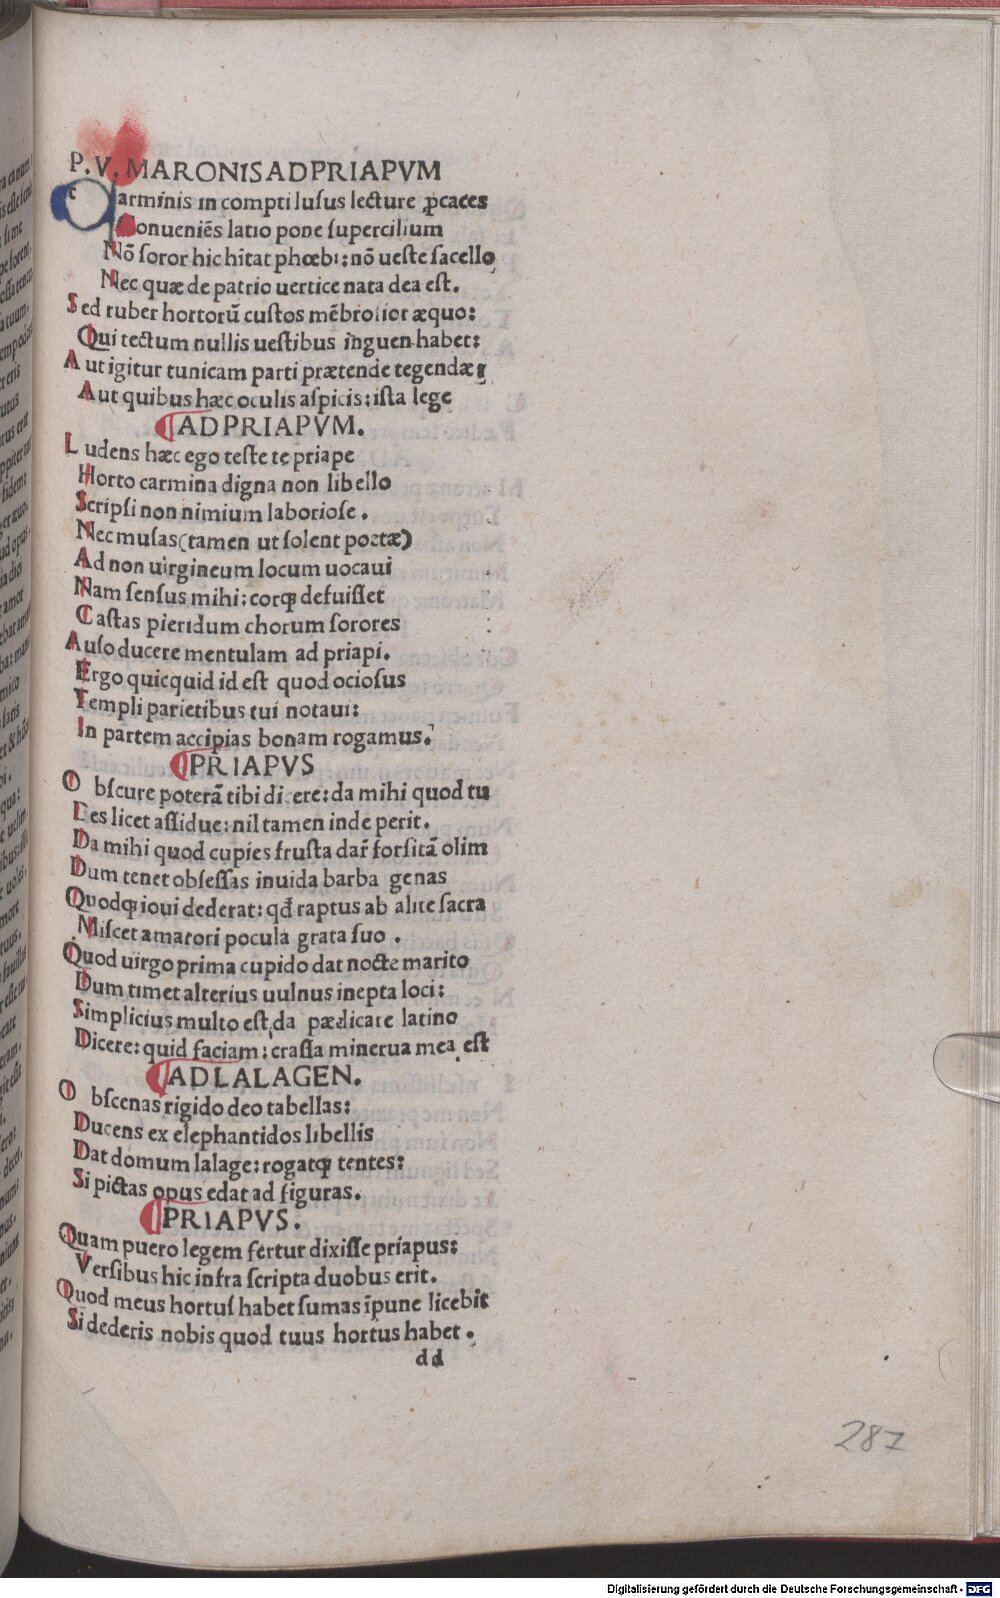 P.V.MARONIS AD PRIAPVM
Carminis in compti luſus lecture ꝓcaces
Conueniẽs latio pone ſupercilium
Nõ ſoror hic hĩtat phœbi: nõ ueſte ſacello
Nec quæ de patrio uertice nata dea eſt.
Sed ruber hortorũ cuſtos mẽbroſior æquo:
Qui tectum nullis ueſtibus inguen habet:
Aut igitur tunicam parti prætende tegendæ:
Aut quibus hæc oculis aſpicis: iſta lege
¶AD PRIAPVM.
Ludens hæc ego teſte te priape
Horto carmina digna non libello
Scripſi non nimium laborioſe.
Nec muſas (tamen ut ſolent poetæ)
Ad non uirgineum locum uocaui
Nam ſenſus mihi: corꝗ defuiſſet
Caſtas pieridum chorum ſorores
Auſo ducere mentulam ad priapi.
Ergo quicquid id eſt quod ocioſus
Templi parietibus tui notaui:
In partem accipias bonam rogamus.
¶PRIAPVS
Obſcure poterã tibi di ere: da mihi quod tu
Des licet aſſidue: nil tamen inde perit.
Da mihi quod cupies fruſta dar̃ forſitã olim
Dum tenet obſeſſas inuida barba genas
Quodꝗ ioui dederat: qđ raptus ab alite ſacra
Miſcet amatori pocula grata ſuo.
Quod uirgo prima cupido dat nocte marito
Dum timet alterius uulnus inepta loci:
Simplicius multo eſt, da pædicare latino
Dicere: quid faciam: craſſa minerua mea eſt
¶AD LALAGEN.
Obſcenas rigido deo tabellas:
Ducens ex elephantidos libellis
Dat domum lalage: rogatꝗ tentes:
Si pictas opus edat ad figuras.
¶PRIAPVS.
Quam puero legem fertur dixiſſe priapus:
Verſibus hic infra ſcripta duobus erit.
Quod meus hortuſ habet ſumas ĩpune licebit
Si dederis nobis quod tuus hortus habet.
dd
287
Digitalisierung gefördert durch die Deutsche Forschungsgemeinschaft - DFG